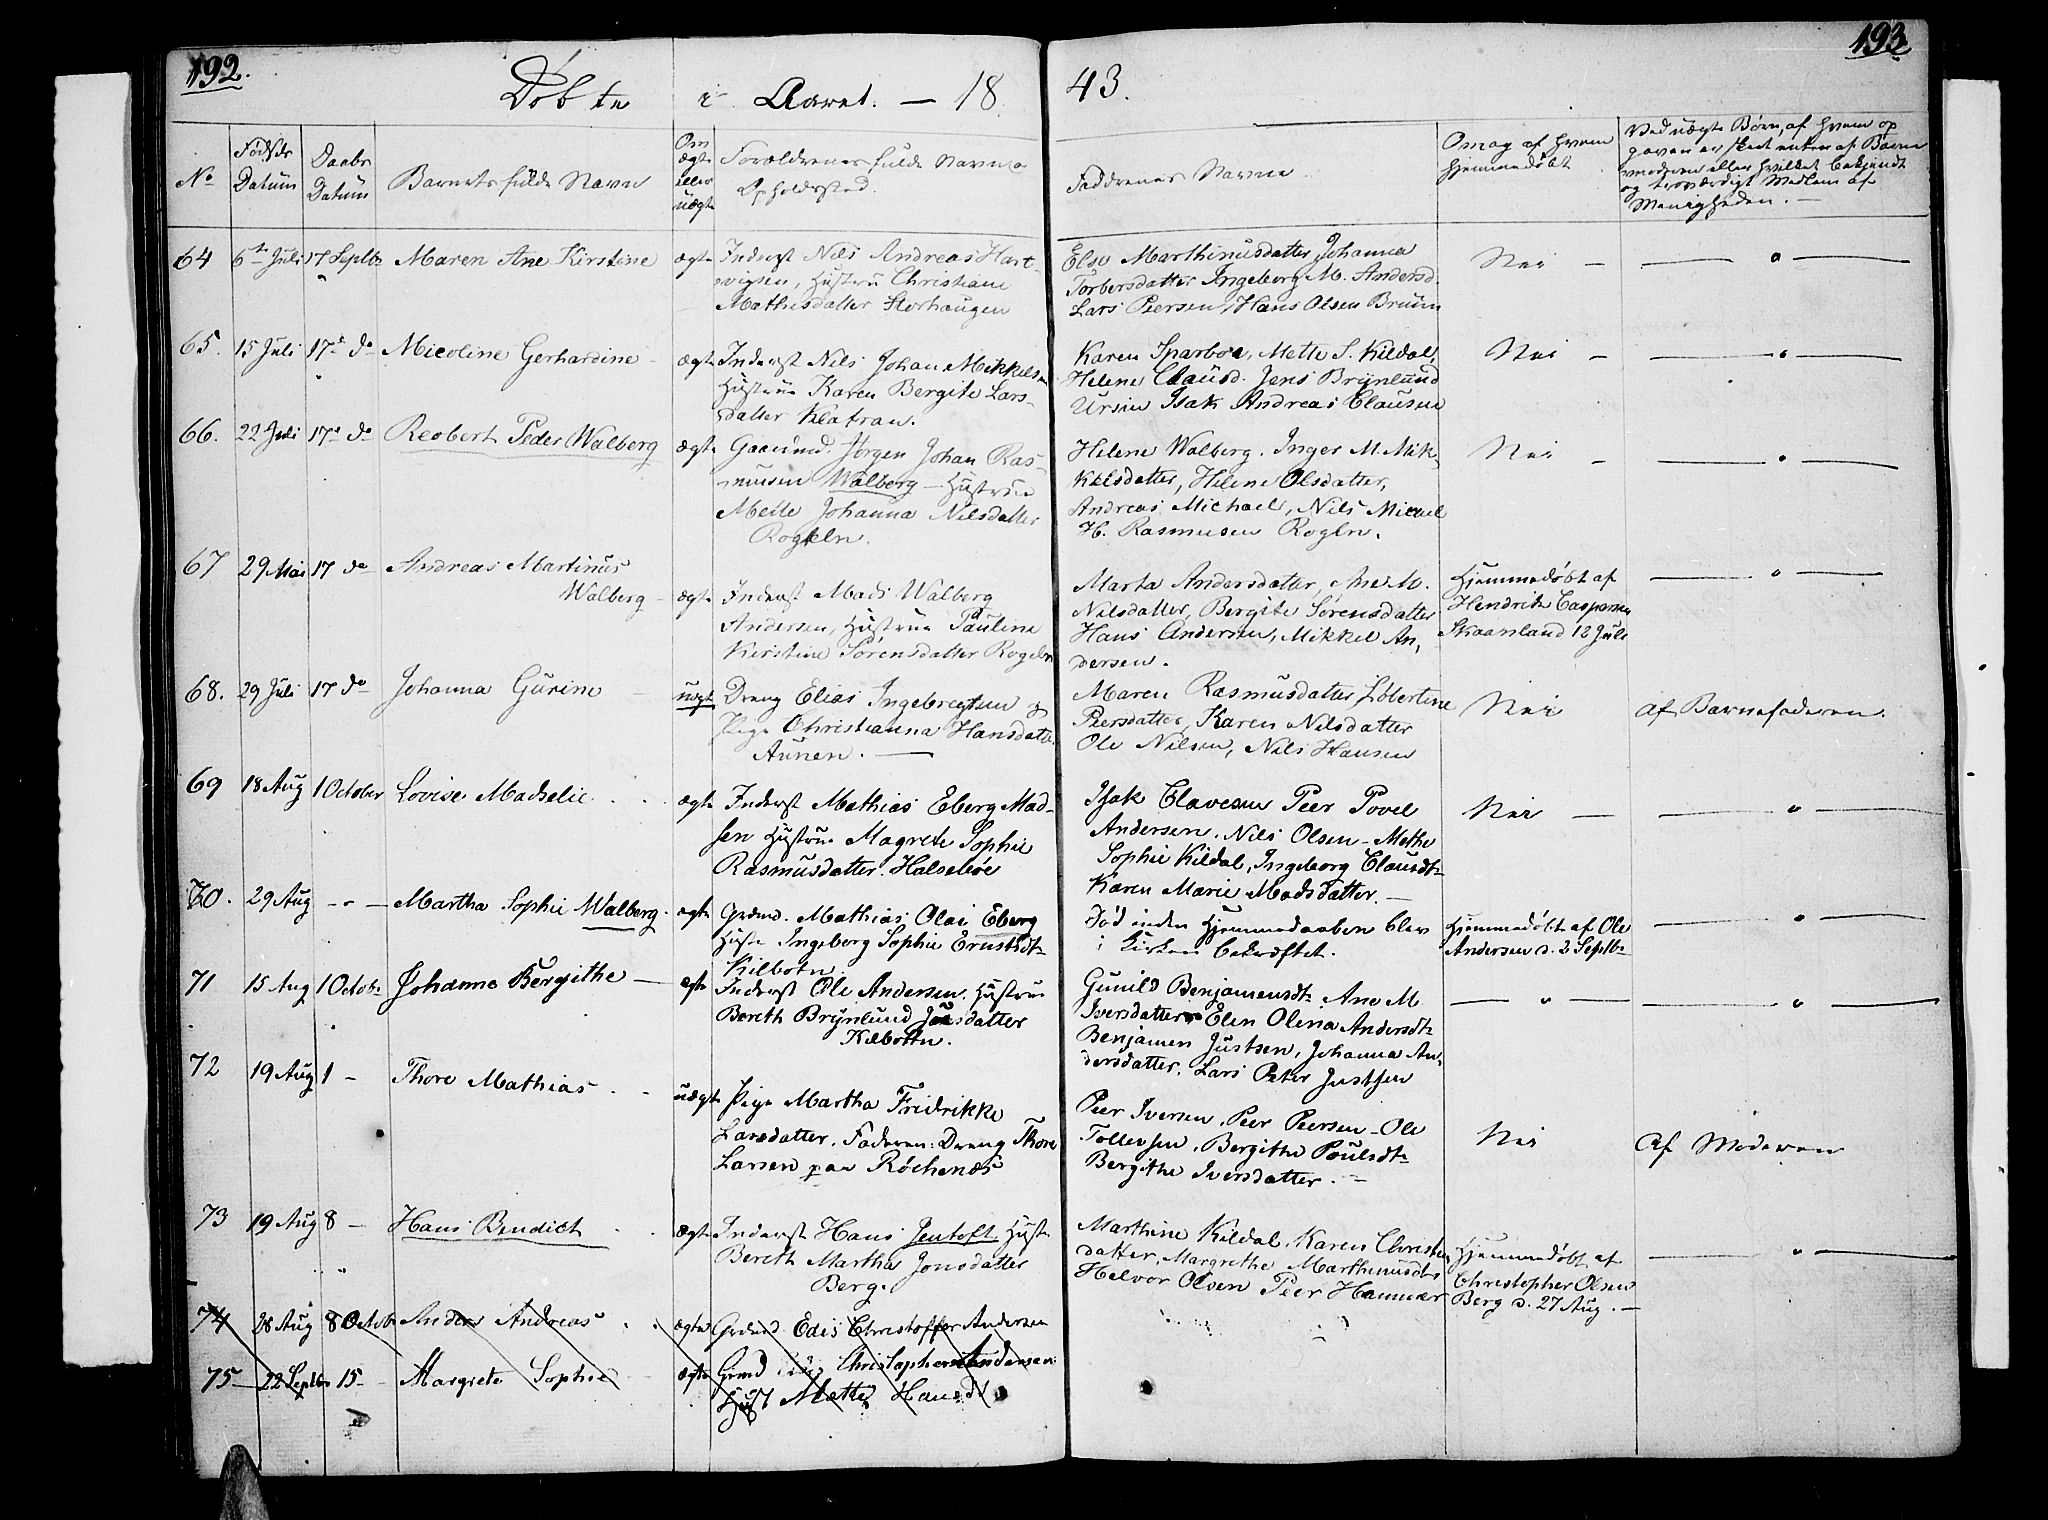 192.
193
Døbte i Aaret. — 18
43.
No
Fødsels Datum
Daabs Datum
Barnets fulde Navn
Om ægte eller uægte
Forældrenes fulde Navn og Opholdssted.
Faddrenes Navne
Om og af hvem hjemmedøbt
Ved uægte Børn, af hvem op
gaven er skeet enten af Barne
moderen eller hvilket bekjendt
og troværdigt Medlem af
Menigheden. —
64 6te Juli 17 Septbr Maren Ane Kirstine ægte Inderst Nils Andreas Hart-
vigsen, Hustru Christiane
Mathisdatter Storhaugen
Else Marthinusdatter, Johanna
Torbersdatter Ingeborg M. Andersd.
Lars Peersen, Hans Olsen Bruun
Nei — — " —
65. 15 Juli 17de do Nicoline Gerhardine ægte Inderst Nils Johan Mikkelsen
Hustrue Karen Bergite Lars-
datter Klatran.
Karen Sparboe, Mette S. Kildal,
Helene Clausd. Jens Brynlund
Ursin Isak Andreas Clausen
Nei — — " —
66. 22 Juli 17de do Reobert Peder Walberg ægte Gaarmd. Jørgen Johan Ras-
musen Walberg — Hustrue
Mette Johanna Nilsdatter
Rogeln.
Helene Walberg. Inger M. Mik-
kelsdatter, Helene Olsdatter,
Andreas Michael, Nils Micael
H. Rasmusen Rogln.
Nei — — " —
67 29 Mai 17 do Andreas Martinus
Walberg — ægte Inderst Mads Walberg
Andersen, Hustrue Pauline
Kirstine Sørensdatter Rogeln
Marta Andersdatter, Ane M.
Nilsdatter, Bergite Sørensdatter
Hans Andersen, Mikkel An,
dersen.
Hjemmedøbt af
Hendrik Caspersen
Skaanland 12 Juli
— " —
68. 29 Juli 17 do Johanna Gurine — uægte Dreng Elias Ingebrigtsen og
Pige Christianna Hansdatter
Aunen. —
Maren Rasmusdatter, Lobertine
Peersdatter, Karen Nilsdatter
Ole Nilsen, Nils Hansen
Nei
af Barnefaderen.
69 18 Aug 1 October Lovise Madselie . . . ægte Inderst Mathias Eberg Mad-
sen Hustrue Magrete Sophie
Rasmusdatter. Halsebøe
Isak Clavesen Peer Povel
Andersen. Nils Olsen — Methe
Sophie Kildal, Ingeborg Clausdtr
Karen Marie Madsdatter. —
Nei — — " —
70. 29 Aug — " — Martha Sophie Walberg. ægte Grdmd. Mathias Olai Eberg
Hustr Ingeborg Sophie Ernstsdtr
Kilbotn.
Død inden Hjemmedaaben blev
i Kirken bekræftet.
Hjemmedøbt af Ole
Andersen d. 2 Septbr
— " —
71 15 Aug 1 Octobr Johanna Bergithe — ægte Inderst Ole Andersen. Hustrue
Bereth Brynlund Jonsdatter
Kilbottn.
Gunild Benjamensdtr. Ane M
Iversdatter Elen Olina Andersdtr
Benjamen Justsen, Johanna An,
dersdatter, Lars Peter Justsen
— " — — " —
72 19 Aug 1 — Thore Mathias . - uægte Pige Martha Fridrikke
Larsdatter. Faderen: Dreng Thore
Larsen paa Røchenæs
Peer Iversen, Peer Peersen — Ole
Tollefsen, Bergithe Poulsdtr
Bergithe Iversdatter. —
Nei
Af Moderen
73 19 Aug 8 — Hans Bendict . . ægte Inderst Hans Jentoft, Hustr
Bereth Martha Jonsdatter
Berg.
Marthine Kildal, Karen Christen
datter, Margrethe Marthinusdtr
Helvor Olsen Peer Hammer
Hjemmedøbt af
Christopher Olsen
Berg d. 27 Aug. —
— " —
74 28 Aug 8 Octobr Anders Andreas . . ægte Grdmd. Edis Christoffer Andersen
75 22 Septbr 15 — Margrete Sophie — ægte Grmd Edis Christopher Andersen
Hust Mette Hansdt